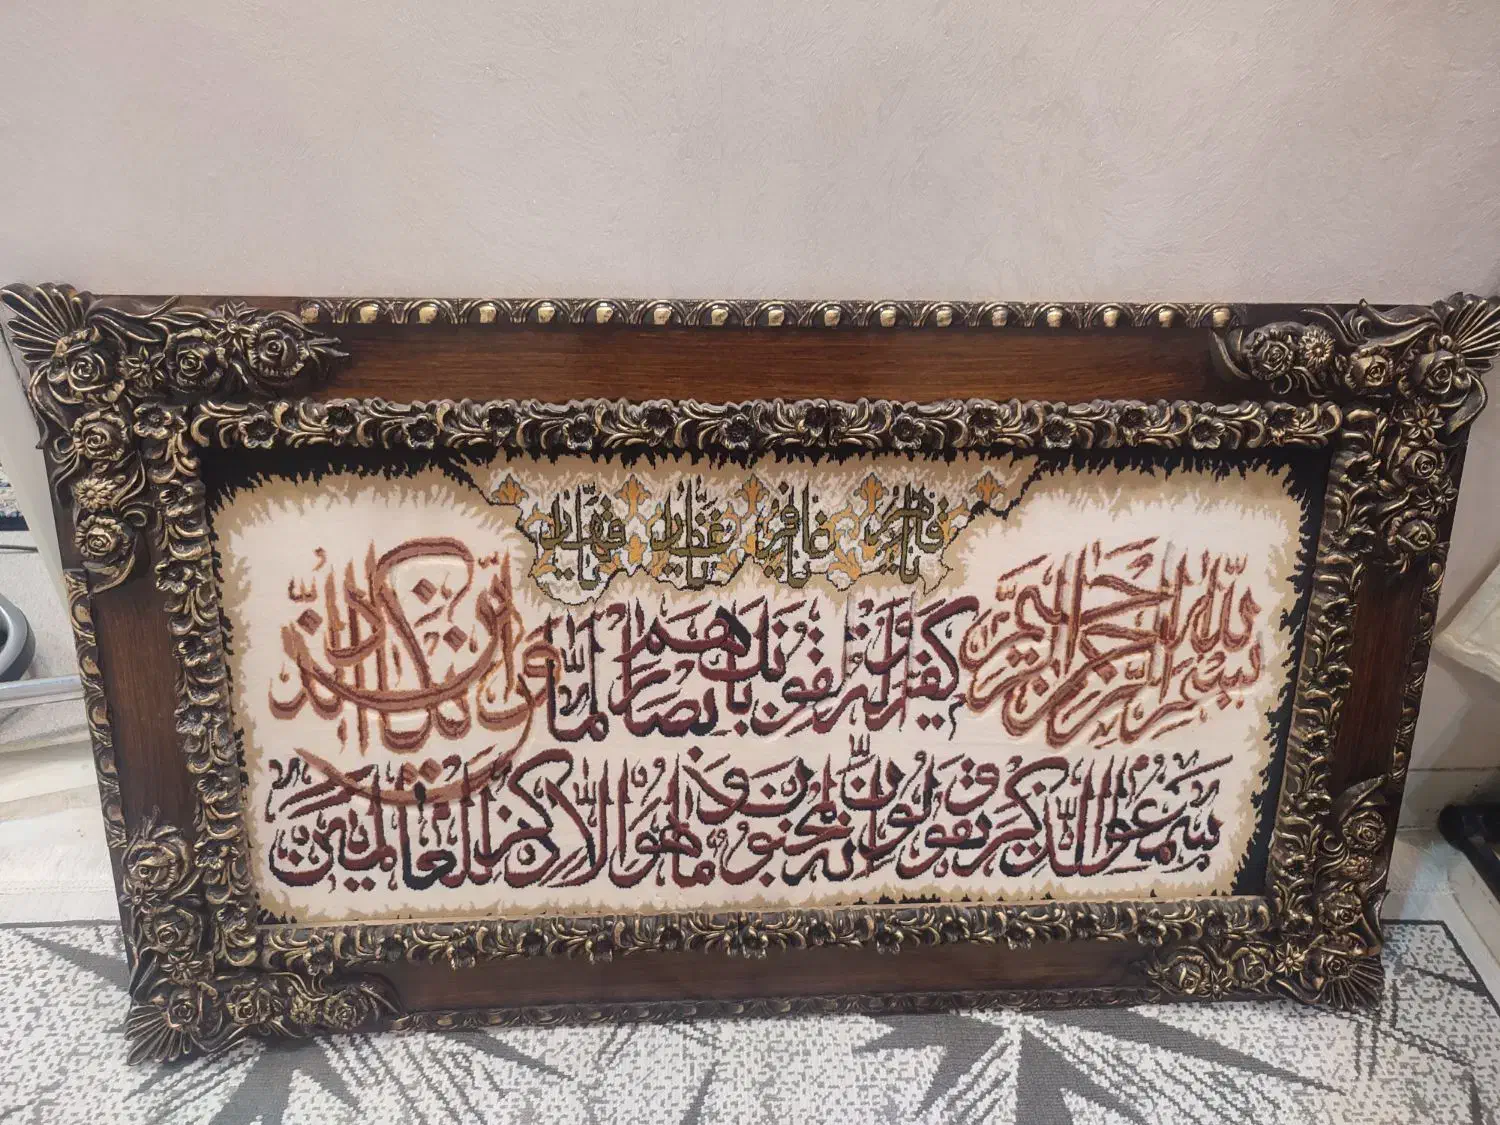 یا قاهر یا غافر یا غفار یا قهار
بسم الله الرحمن الرحیم
وان یکاد الذین
کفروا لیزلقونک بابصارهم لما
سمعوا الذکر و یقولون انه لمجنون و ما هو الا ذکر للعالمین